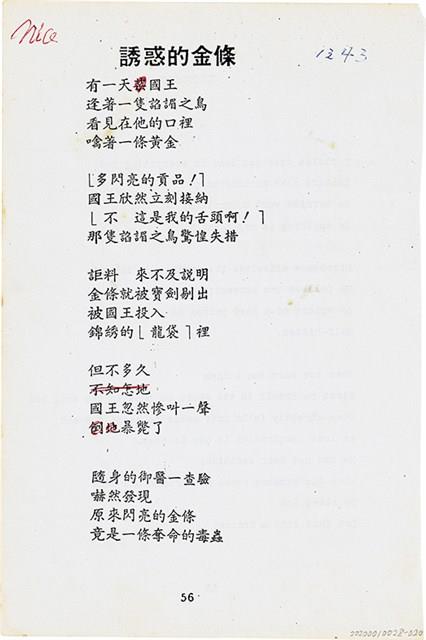 Nice
1243
誘惑的金條
有一天國王
逢著一隻諂媚之鳥
看見在他的口裡
噙著一條黃金
⌊多閃亮的貢品！⌉
國王欣然立刻接納
⌊不　這是我的舌頭啊！⌉
那隻諂媚之鳥驚惶失措
詎料　來不及說明
金條就被寶劍剔出
被國王投入
錦綉的⌊龍袋⌉裡
但不多久
不知怎地
國王忽然慘叫一聲
倒地暴斃了
隨身的御醫一查驗
嚇然發現
原來閃亮的金條
竟是一條奪命的毒蟲
56
20200010028-020